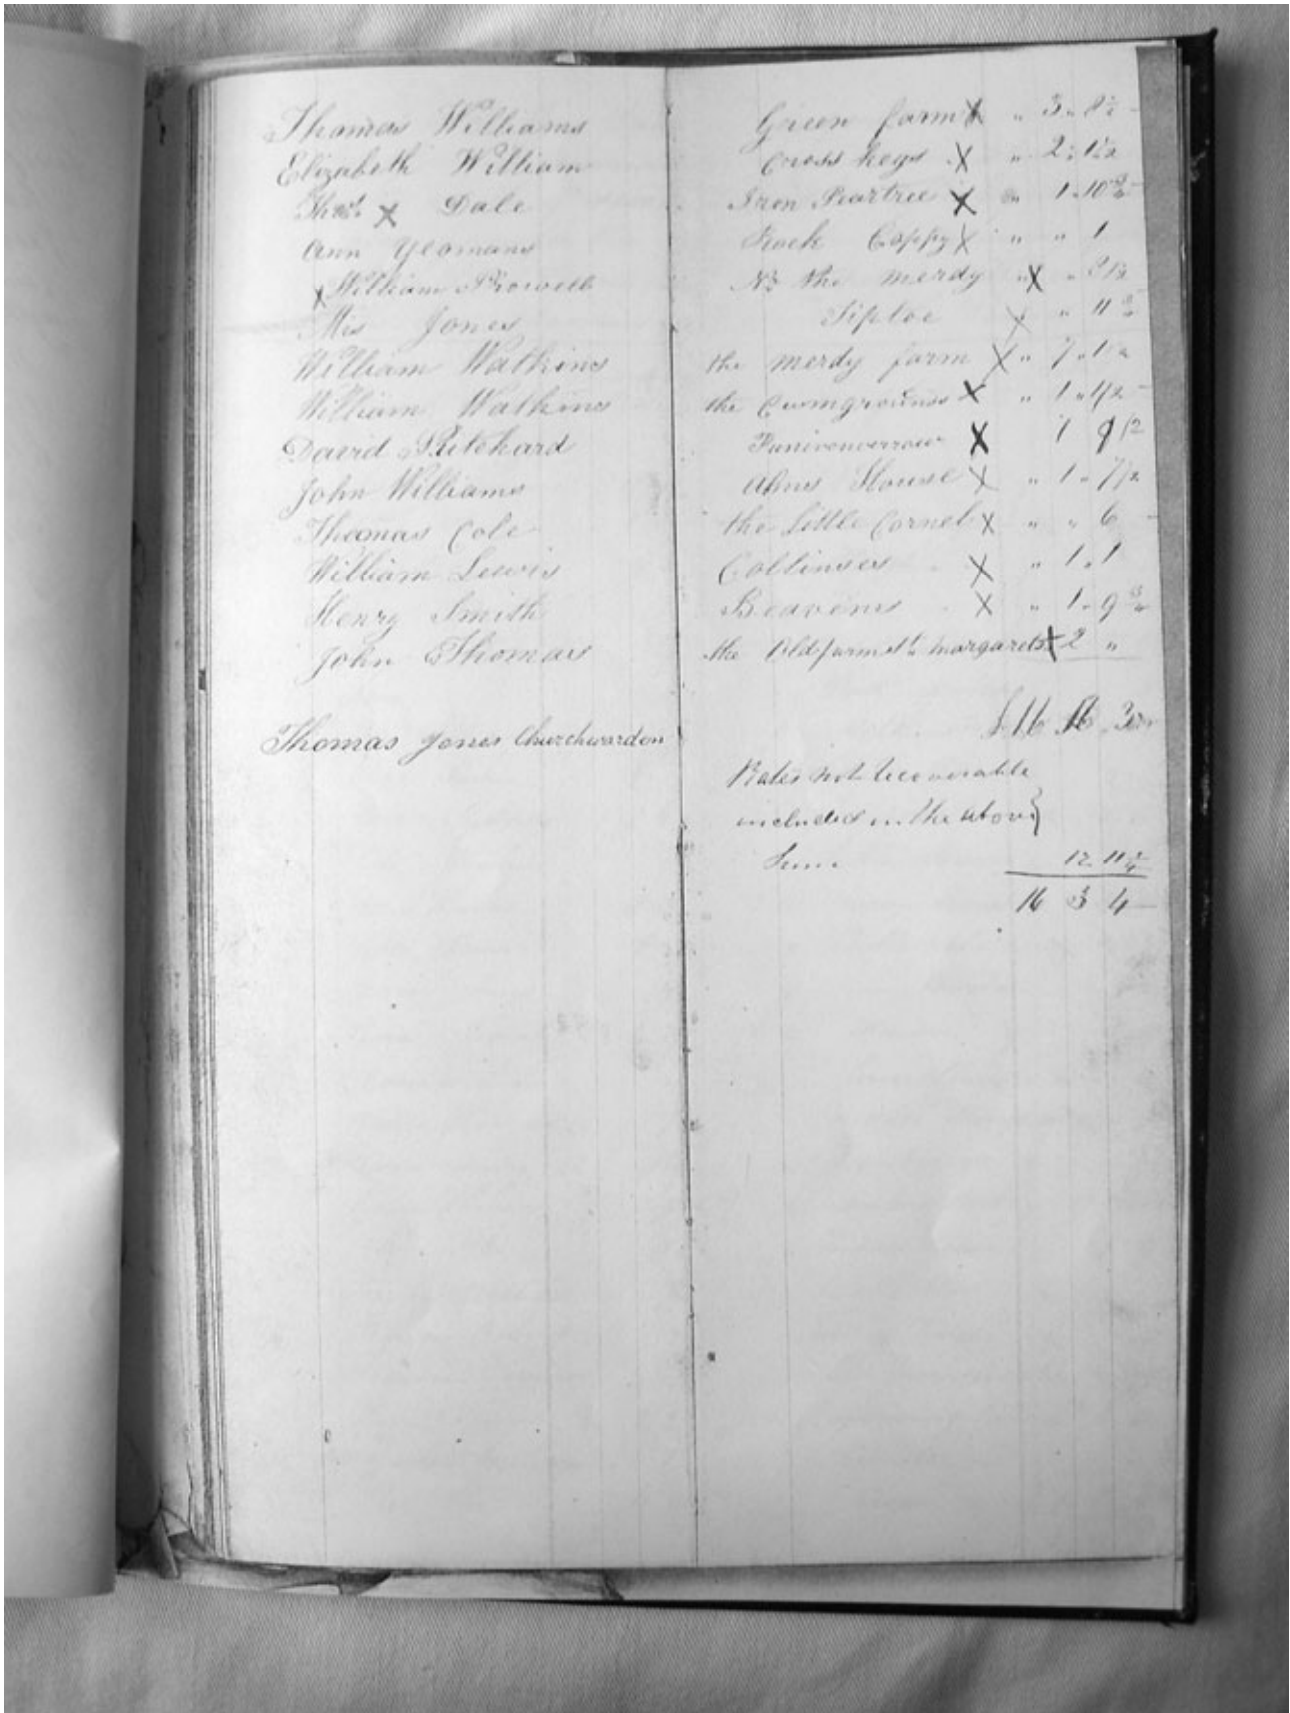 Thomas Williams Green farm X " 3 " 8 1/2
Elizabeth William Cross keys X " 2 " 1 1/2
Thos X Dale Iron Peartree X " 1 " 10 3/4
Ann Yeomans Rock Coppy X " " 1
X William Prowell No the merdy X "
Mis Jones Siploe X " 11 3/4
William Watkins the merdy farm X " 7 " 1 1/2
William Watkins the Cwmgrounds X " 1 " 1/2
David Pritchard X 1 9 1/2
John Williams Alms House X " 1 " 7 1/2
Thomas Cole the Little Cornel X " " 6
William Lewis Collinses X " 1 " 1
Henry Smith Beavens X " 1 " 9 3/4
John Thomas the Old farm St Margarets X 2 "
£16 16 3
Thomas Jones Churchwarden
Rates not recoverable
included in the above }
Sum 12 11 1/4
16 3 4